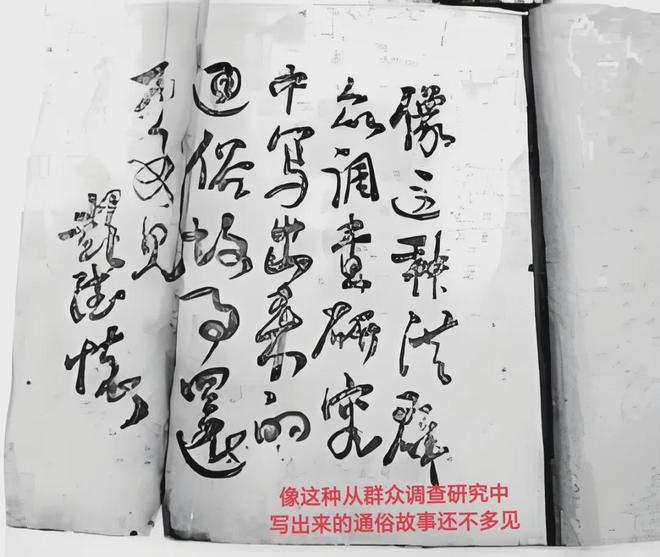 像这种從群
众调查研究
中寫出来的
通俗故事還
不多见
像这种从群众调查研究中
写出来的通俗故事还不多见